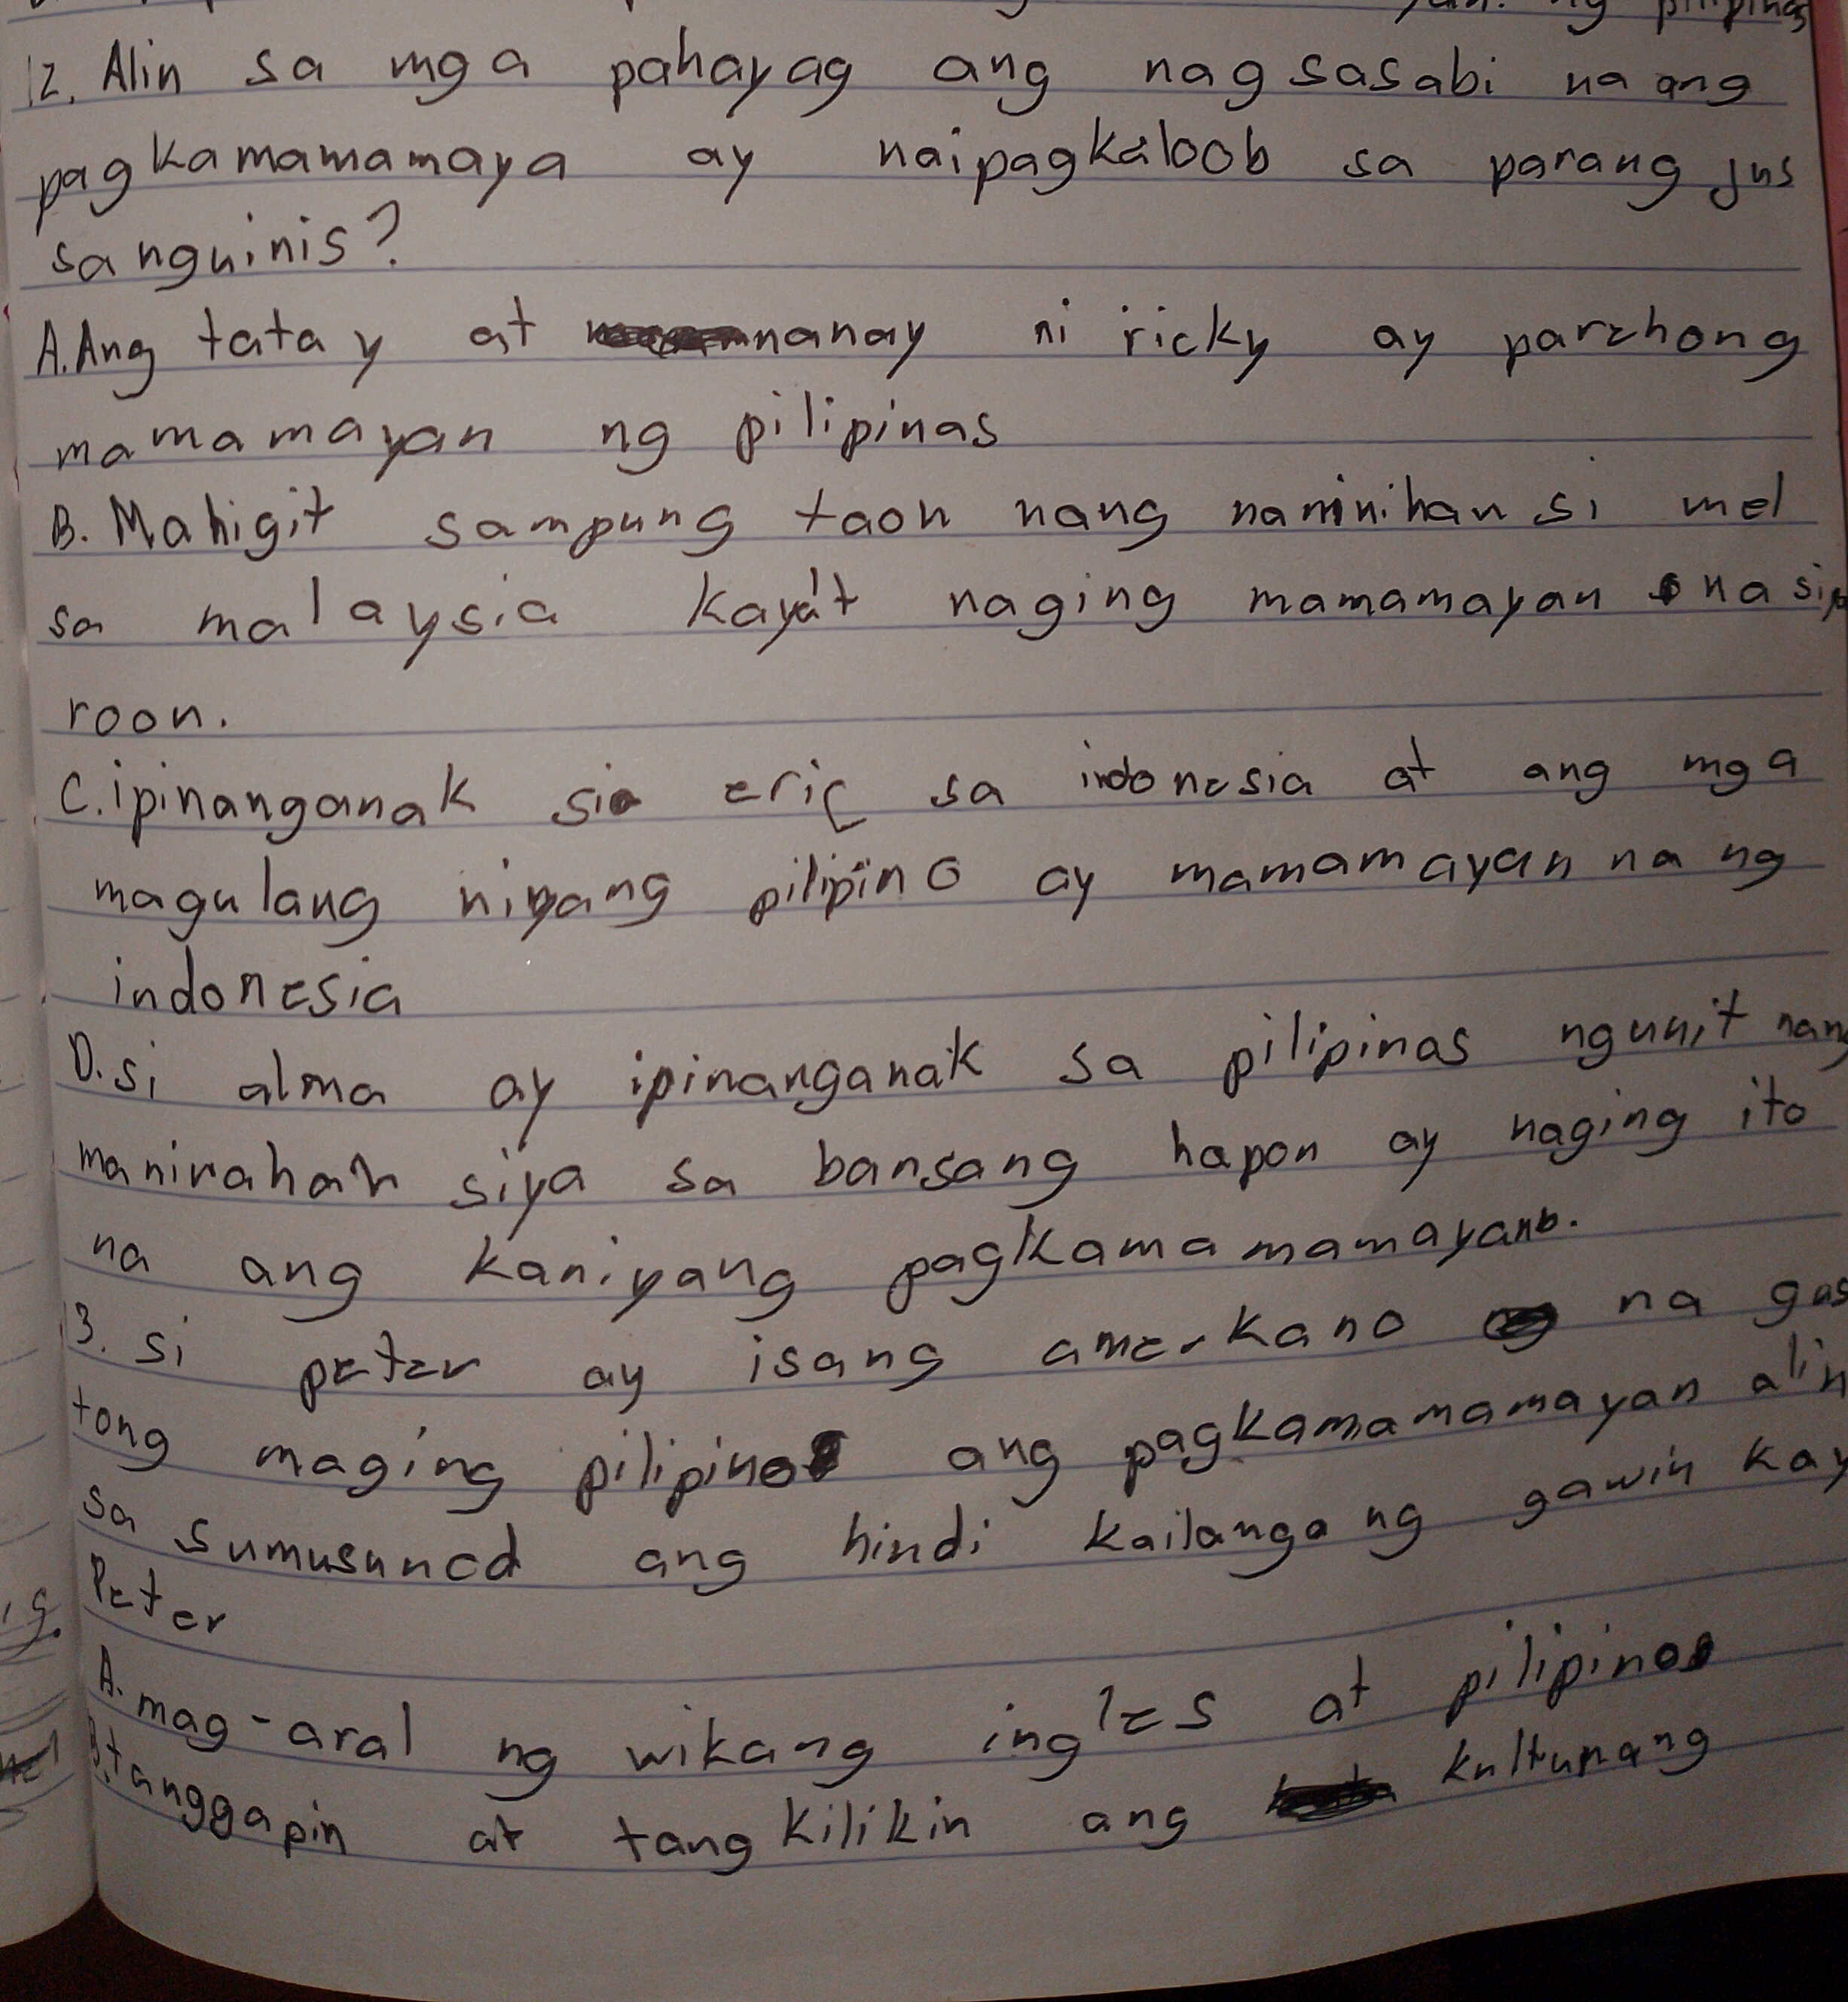 ng pilipinas
12. Alin sa mga pahayag ang nagsasabi na ang
pagkamamamaya ay naipagkaloob sa parang jus
sanguinis?
A. Ang tatay at nanay ni ricky ay parehong
mamamayan ng pilipinas
B. Mahigit sampung taon nang naninihan si mel
sa malaysia kaya't naging mamamayan na siya
roon.
C. ipinanganak si eric sa indonesia at ang mga
magulang niyang pilipino ay mamamayan na ng
indonesia
D. si alma ay ipinanganak sa pilipinas ngunit nang
manirahan siya sa bansang hapon ay naging ito
na ang kaniyang pagkamamamayan.
13. si peter ay isang amerkano na gus
tong maging pilipino ang pagkamamamayan alin
sa sumusunod ang hindi kailangang gawin kay
Peter
A. mag-aral ng wikang ingles at pilipino
B. tanggapin at tangkilikin ang kulturang